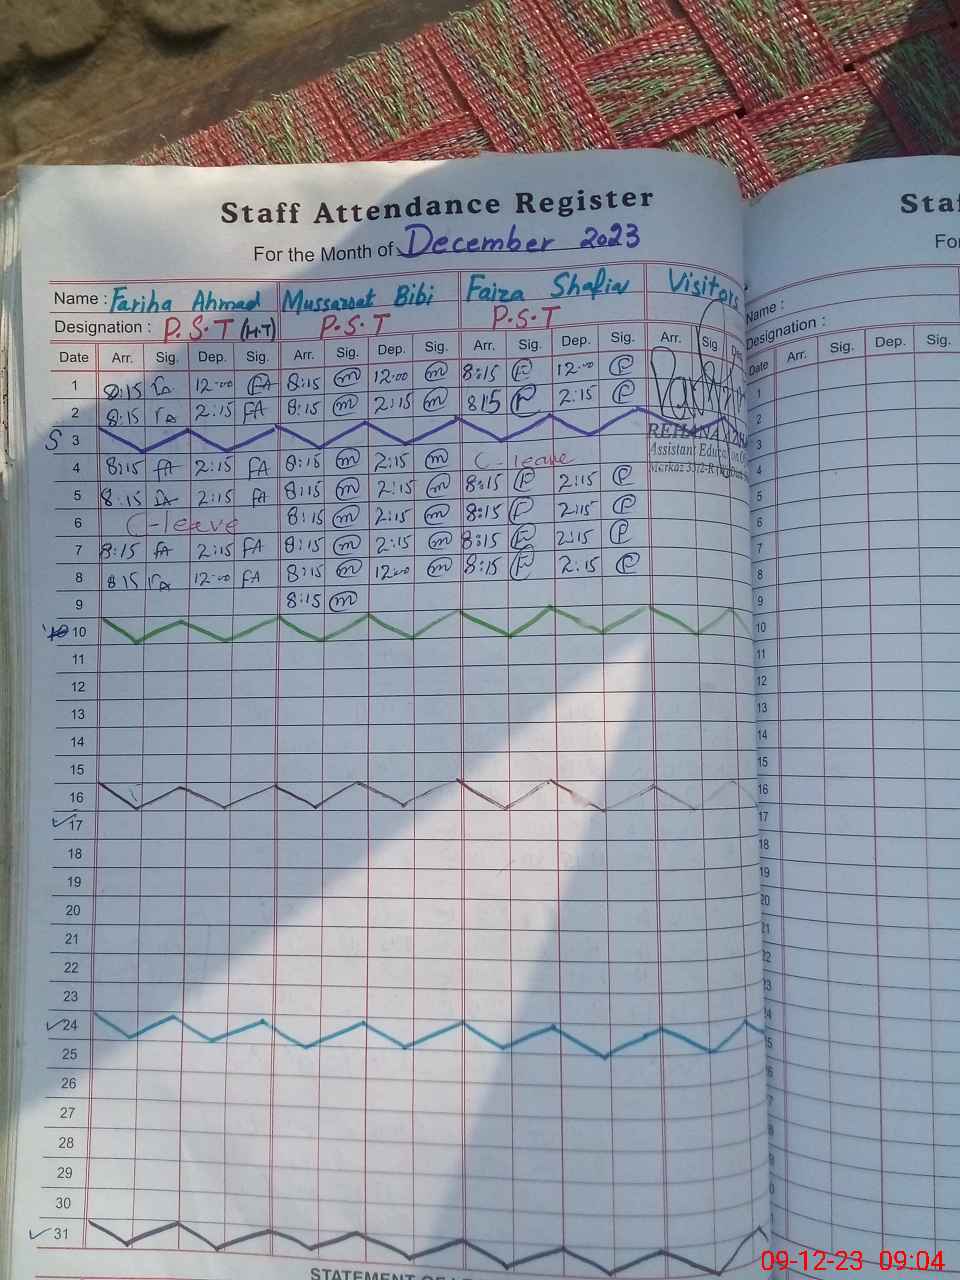 Staff Attendance Register
For the Month of December 2023
Name : Fariha Ahmad Mussarat Bibi Faiza Visitors
Designation : P.S.T (H.T) P.S.T P.S.T
Date Arr. Sig. Dep. Sig. Arr. Sig. Dep. Sig. Arr. Sig. Dep. Sig. Arr. Sig.
1 8:15 12:00 FA 8:15 m 12:00 m 8:15 F 12:00 F
2 8:15 2:15 FA 8:15 m 2:15 m 815 F 2:15 F
S 3
REHANA
4 8:15 FA 2:15 FA 8:15 m 2:15 m C-leave
Assistant Education
5 8:15 2:15 FA 8:15 m 2:15 m 8:15 F 2:15 F
6 C-leave 8:15 m 2:15 m 8:15 F 2:15 F
7 8:15 FA 2:15 FA 8:15 m 2:15 m 8:15 F 2:15 F
8 815 12:00 FA 8:15 m 12:00 m 8:15 F 2:15 F
9 8:15 m
10
11
12
13
14
15
16
17
18
19
20
21
22
23
24
25
26
27
28
29
30
31
STATEMENT OF
Name :
Designation :
Date Arr. Sig. Dep. Sig.
1
2
3
4
5
6
7
8
9
10
11
12
13
14
15
16
17
18
19
09-12-23 09:04